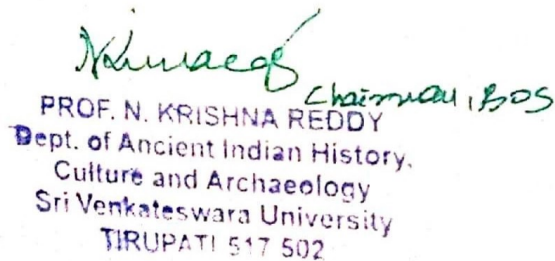 Chairman, BOS
PROF. N. KRISHNA REDDY
Dept. of Ancient Indian History,
Culture and Archaeology
Sri Venkateswara University
TIRUPATI 517 502